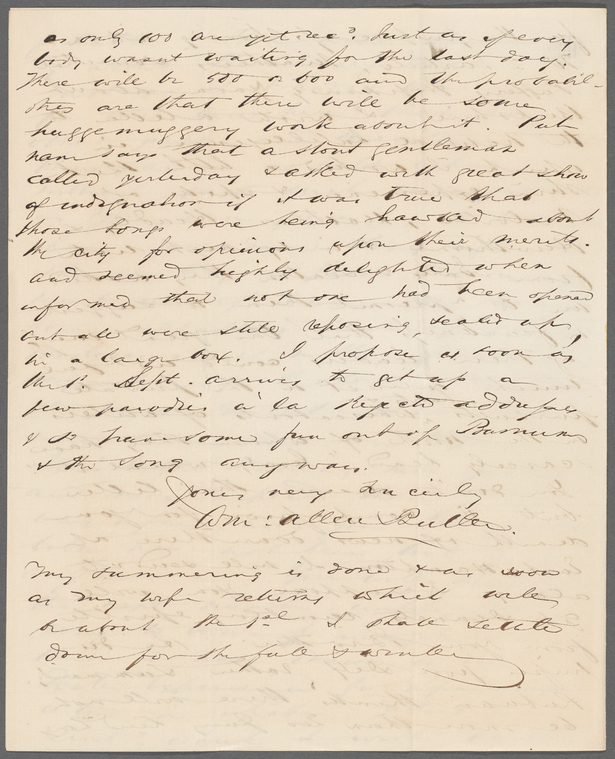 as only 100 are yet recd. Just as if every
body wasn't waiting for the last day.
There will be 500 or 600 and the probabil-
ities are that there will be some
huggermuggery work about it. Put
nam says that a stout gentleman
called yesterday & asked with great show
of indignation if it was true that
those songs were being hawked about
the city for opinions upon their merits.
and seemed highly delighted when
informed that not one had been opened
but all were still reposing, sealed up,
in a large box. I propose as soon as
the 1st. Sept. arrives to get up a
few parodies à la Rejected addresses
& to have some fun out of Barnum
& the Song any way.
Yours very sincerely
Wm: Allen Butler.
My summering is done & as soon
as my wife returns which will
be about the 1st I shall settle
down for the fall & winter